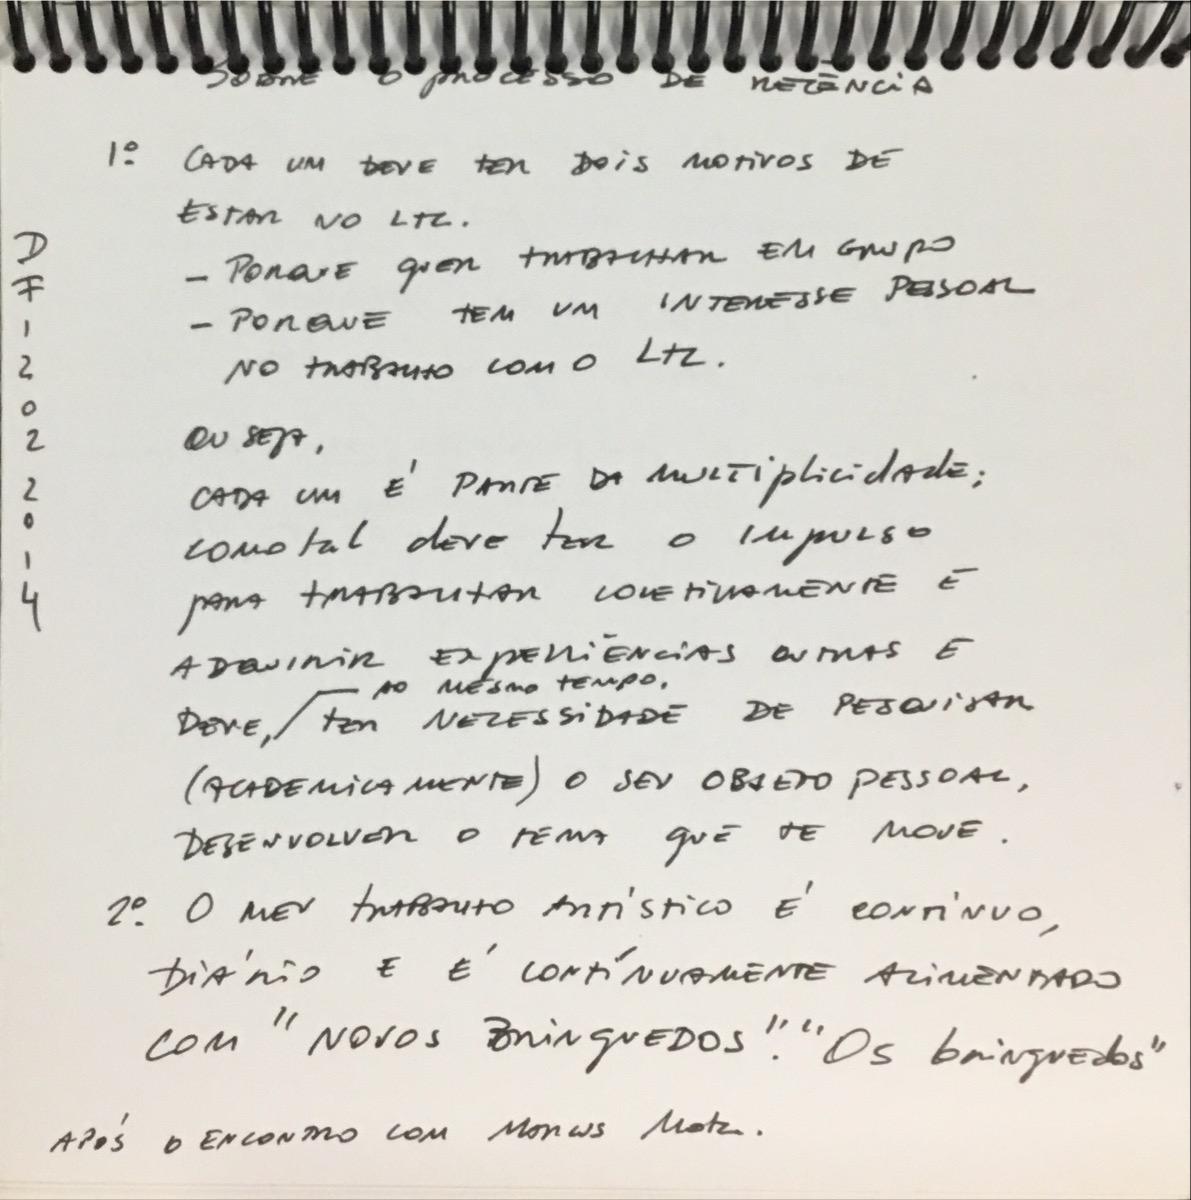 SOBRE O PROCESSO DE REGÊNCIA
1º. CADA UM DEVE TER DOIS MOTIVOS DE
ESTAR NO LTC.
- PORQUE QUER TRABALHAR EM GRUPO
- PORQUE TEM UM INTERESSE PESSOAL
NO TRABALHO COM O LTC.
OU SEJA,
CADA UM É PARTE DA MULTIPLICIDADE;
COMO TAL DEVE TER O IMPULSO
PARA TRABALHAR COLETIVAMENTE E
ADQUIRIR EXPERIÊNCIAS OUTRAS E
AO MESMO TEMPO,
DEVE, TER NECESSIDADE DE PESQUISAR
(ACADEMICAMENTE) O SEU OBJETO PESSOAL,
DESENVOLVER O TEMA QUE TE MOVE.
2º. O MEU TRABALHO ARTÍSTICO É CONTÍNUO,
DIÁRIO E É CONTÍNUAMENTE ALIMENTADO
COM "NOVOS BRINQUEDOS". "OS BRINQUEDOS"
APÓS O ENCONTRO COM MARCUS MOTA.
D
F
1
2
0
2
2
0
1
4